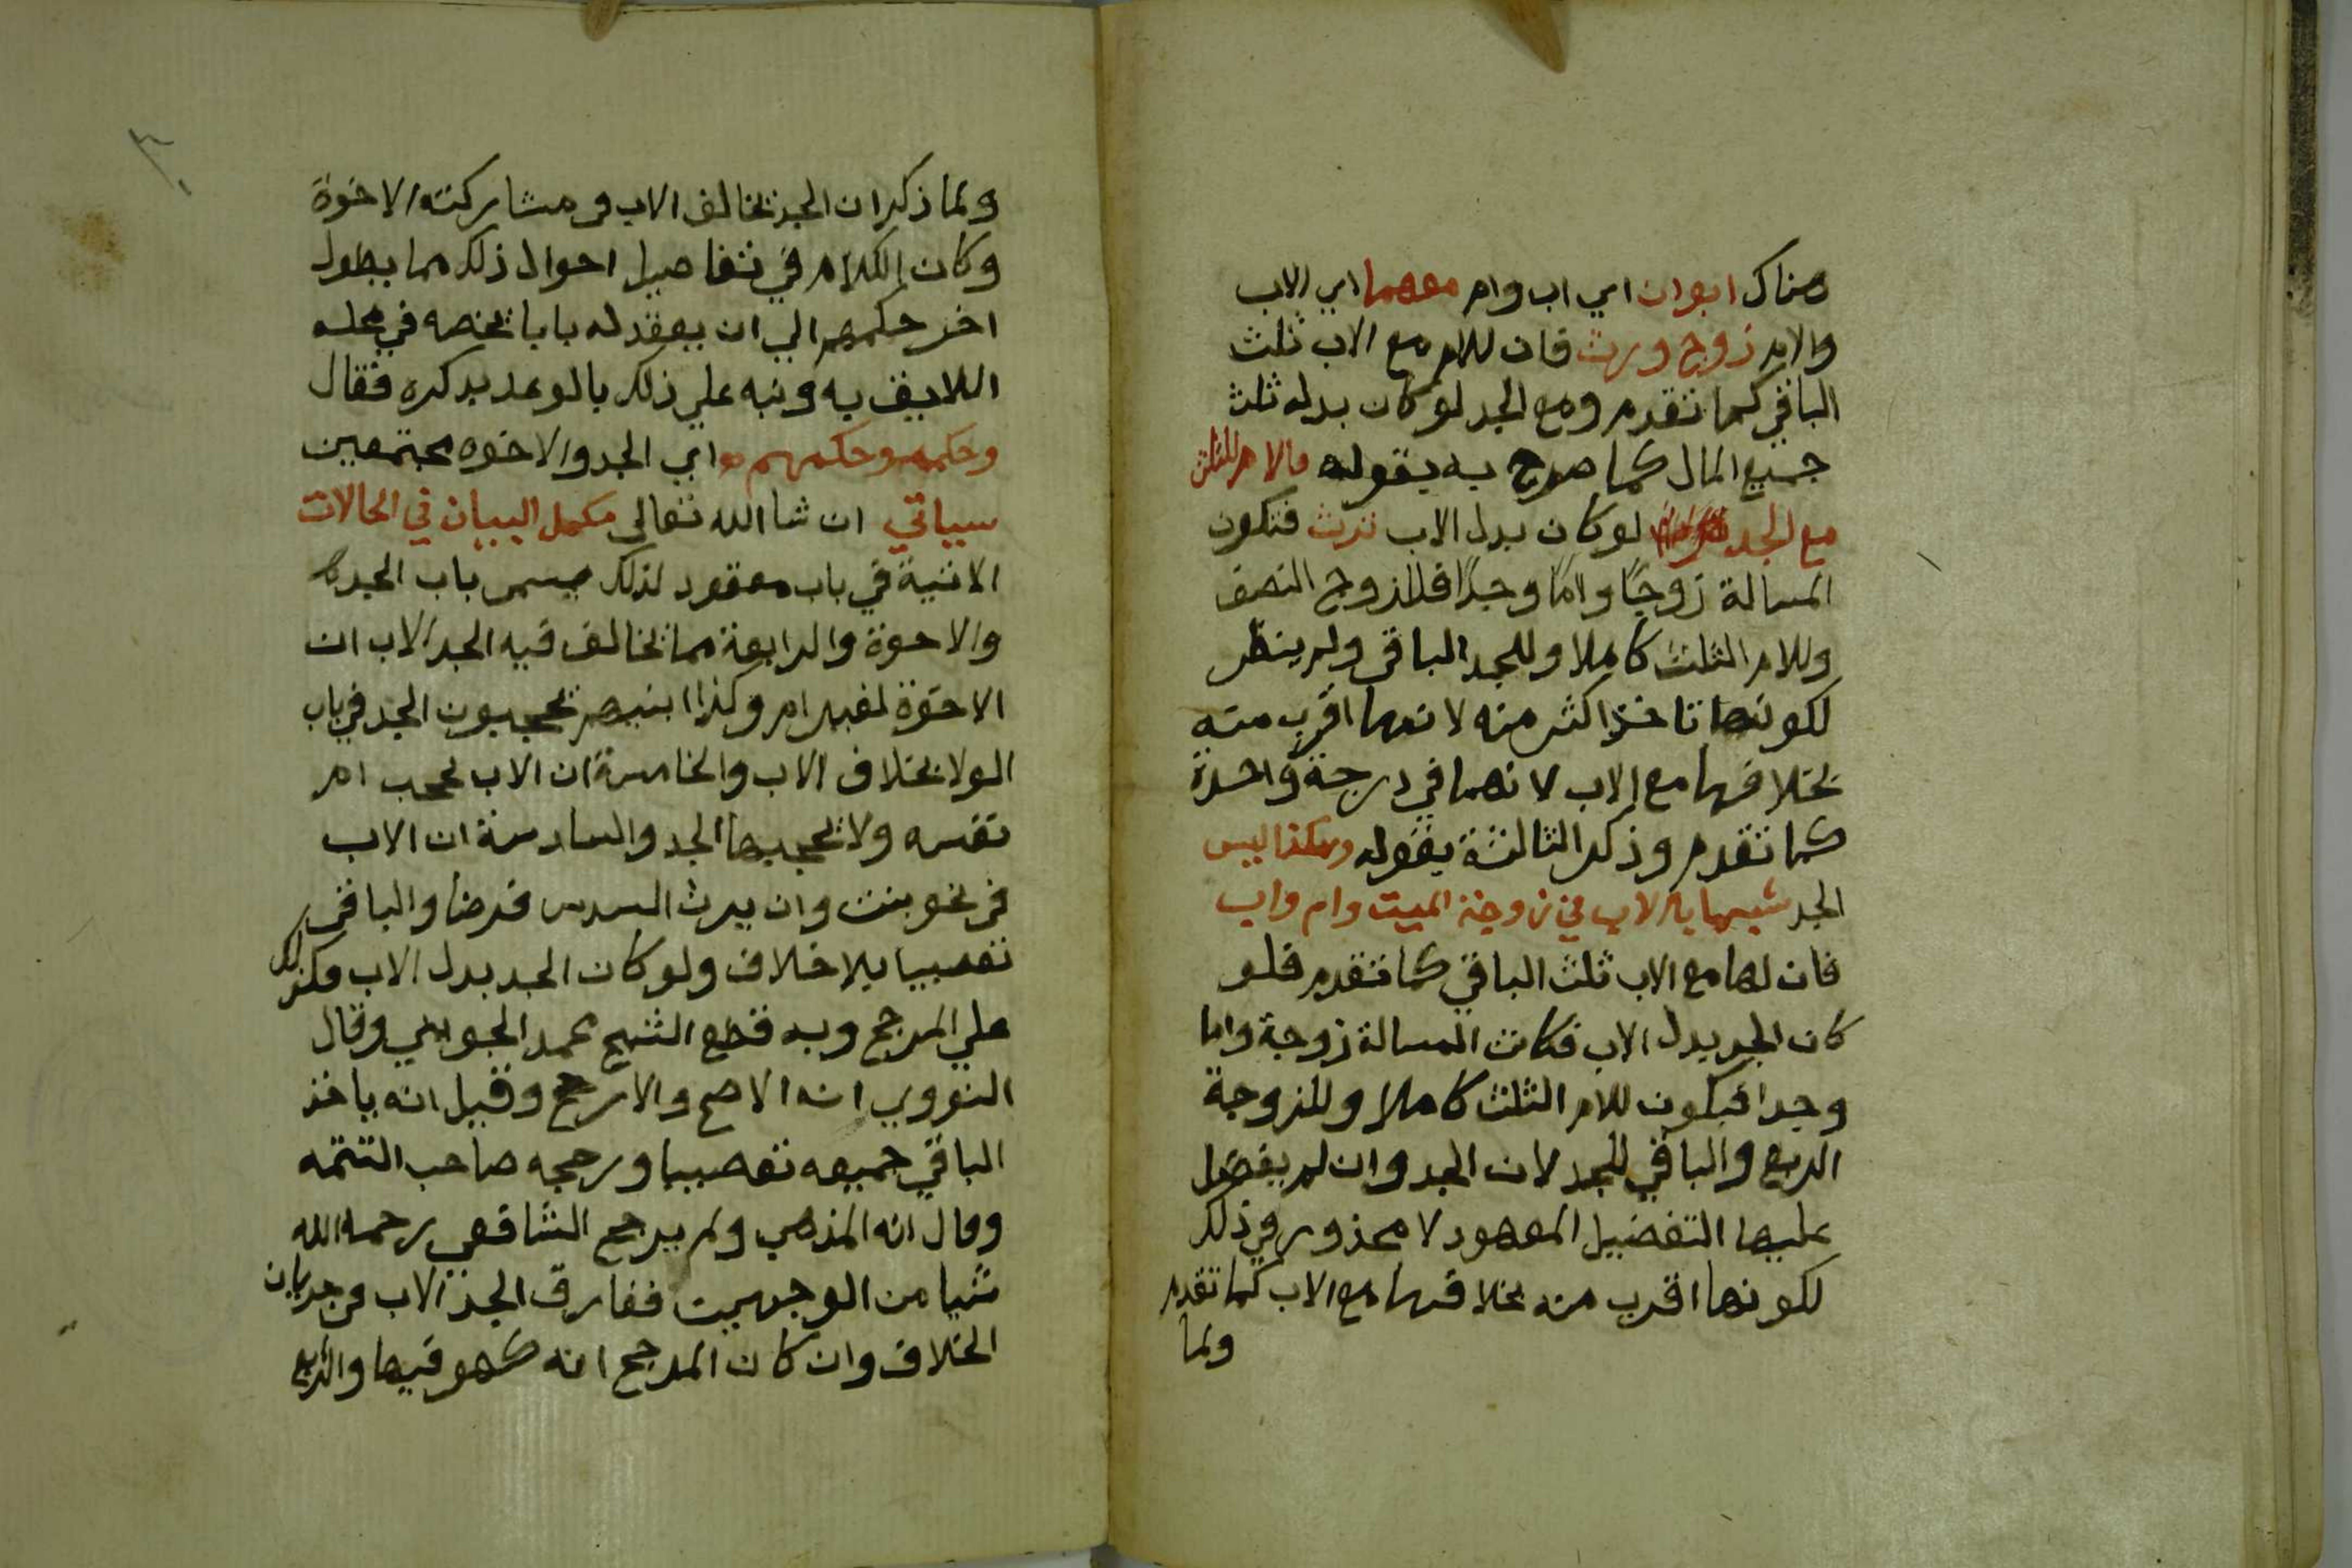 هناك ابوان اي اب وام معهما اي الاب
والام زوج ورث فان للام مع الاب ثلث
الباقي كما تقدم ومع الجد لو كان بدله ثلث
جميع المال كما صرح به بقوله فالام للثلث
مع الجد لو كان بدل الاب ترث فتكون
المسالة زوجًا وامًا وجدًا فللزوج النصف
وللام الثلث كاملا وللجد الباقي ولم ينظر
لكونها تاخذ اكثر منه لانها اقرب منه
بخلافها مع الاب لانهما في درجة واحدة
كما تقدم وذكر الثالثة بقوله وهكذا ليس
الجد شبيها بالاب في زوجة الميت وام واب
فان لها مع الاب ثلث الباقي كما تقدم فلو
كان الجد بدل الاب فكانت المسالة زوجة واما
وجدا فيكون للام الثلث كاملا وللزوجة
الربع والباقي للجد لان الجد وان لم يفضل
عليها التفضيل المعهود لا محذور في ذلك
لكونها اقرب منه بخلافها مع الاب كما تقدم
ولما
ولما ذكر ان الجد يخالف الاب في مشاركته الاخوة
وكان الكلام في تفاصيل احوال ذلك مما يطول
اخر حكمهم الي ان يعقد له بابا يخصه في محله
اللايق به ونبه علي ذلك بالوعد بذكره فقال
وحكمه وحكمهم اي الجد والاخوه مجتمعين
سياتي ان شا الله تعالى مكمل البيان في الحالات
الاتية في باب معقود لذلك يسمى باب الجد
والاخوة والرابعة مما يخالف فيه الجد الاب ان
الاخوة لغير ام وكذا بنيهم يحجبون الجد في باب
الولا بخلاف الاب والخامسة ان الاب يحجب ام
نفسه ولا يحجبها الجد والسادسة ان الاب
في نحو بنت وان يرث السدس فرضا والباقي
تعصيبا بلا خلاف ولو كان الجد بدل الاب فكذلك
علي المرجح وبه قطع الشيخ محمد الجويني وقال
النووي انه الاصح والارجح وقيل انه ياخذ
الباقي جميعه تعصيبا ورجحه صاحب التتمه
وقال انه المذهب ولم يرجح الشافعي رحمه الله
شيا من الوجهين ففارق الجد الاب في جريان
الخلاف وان كان المرجح انه كهو فيها والرابع